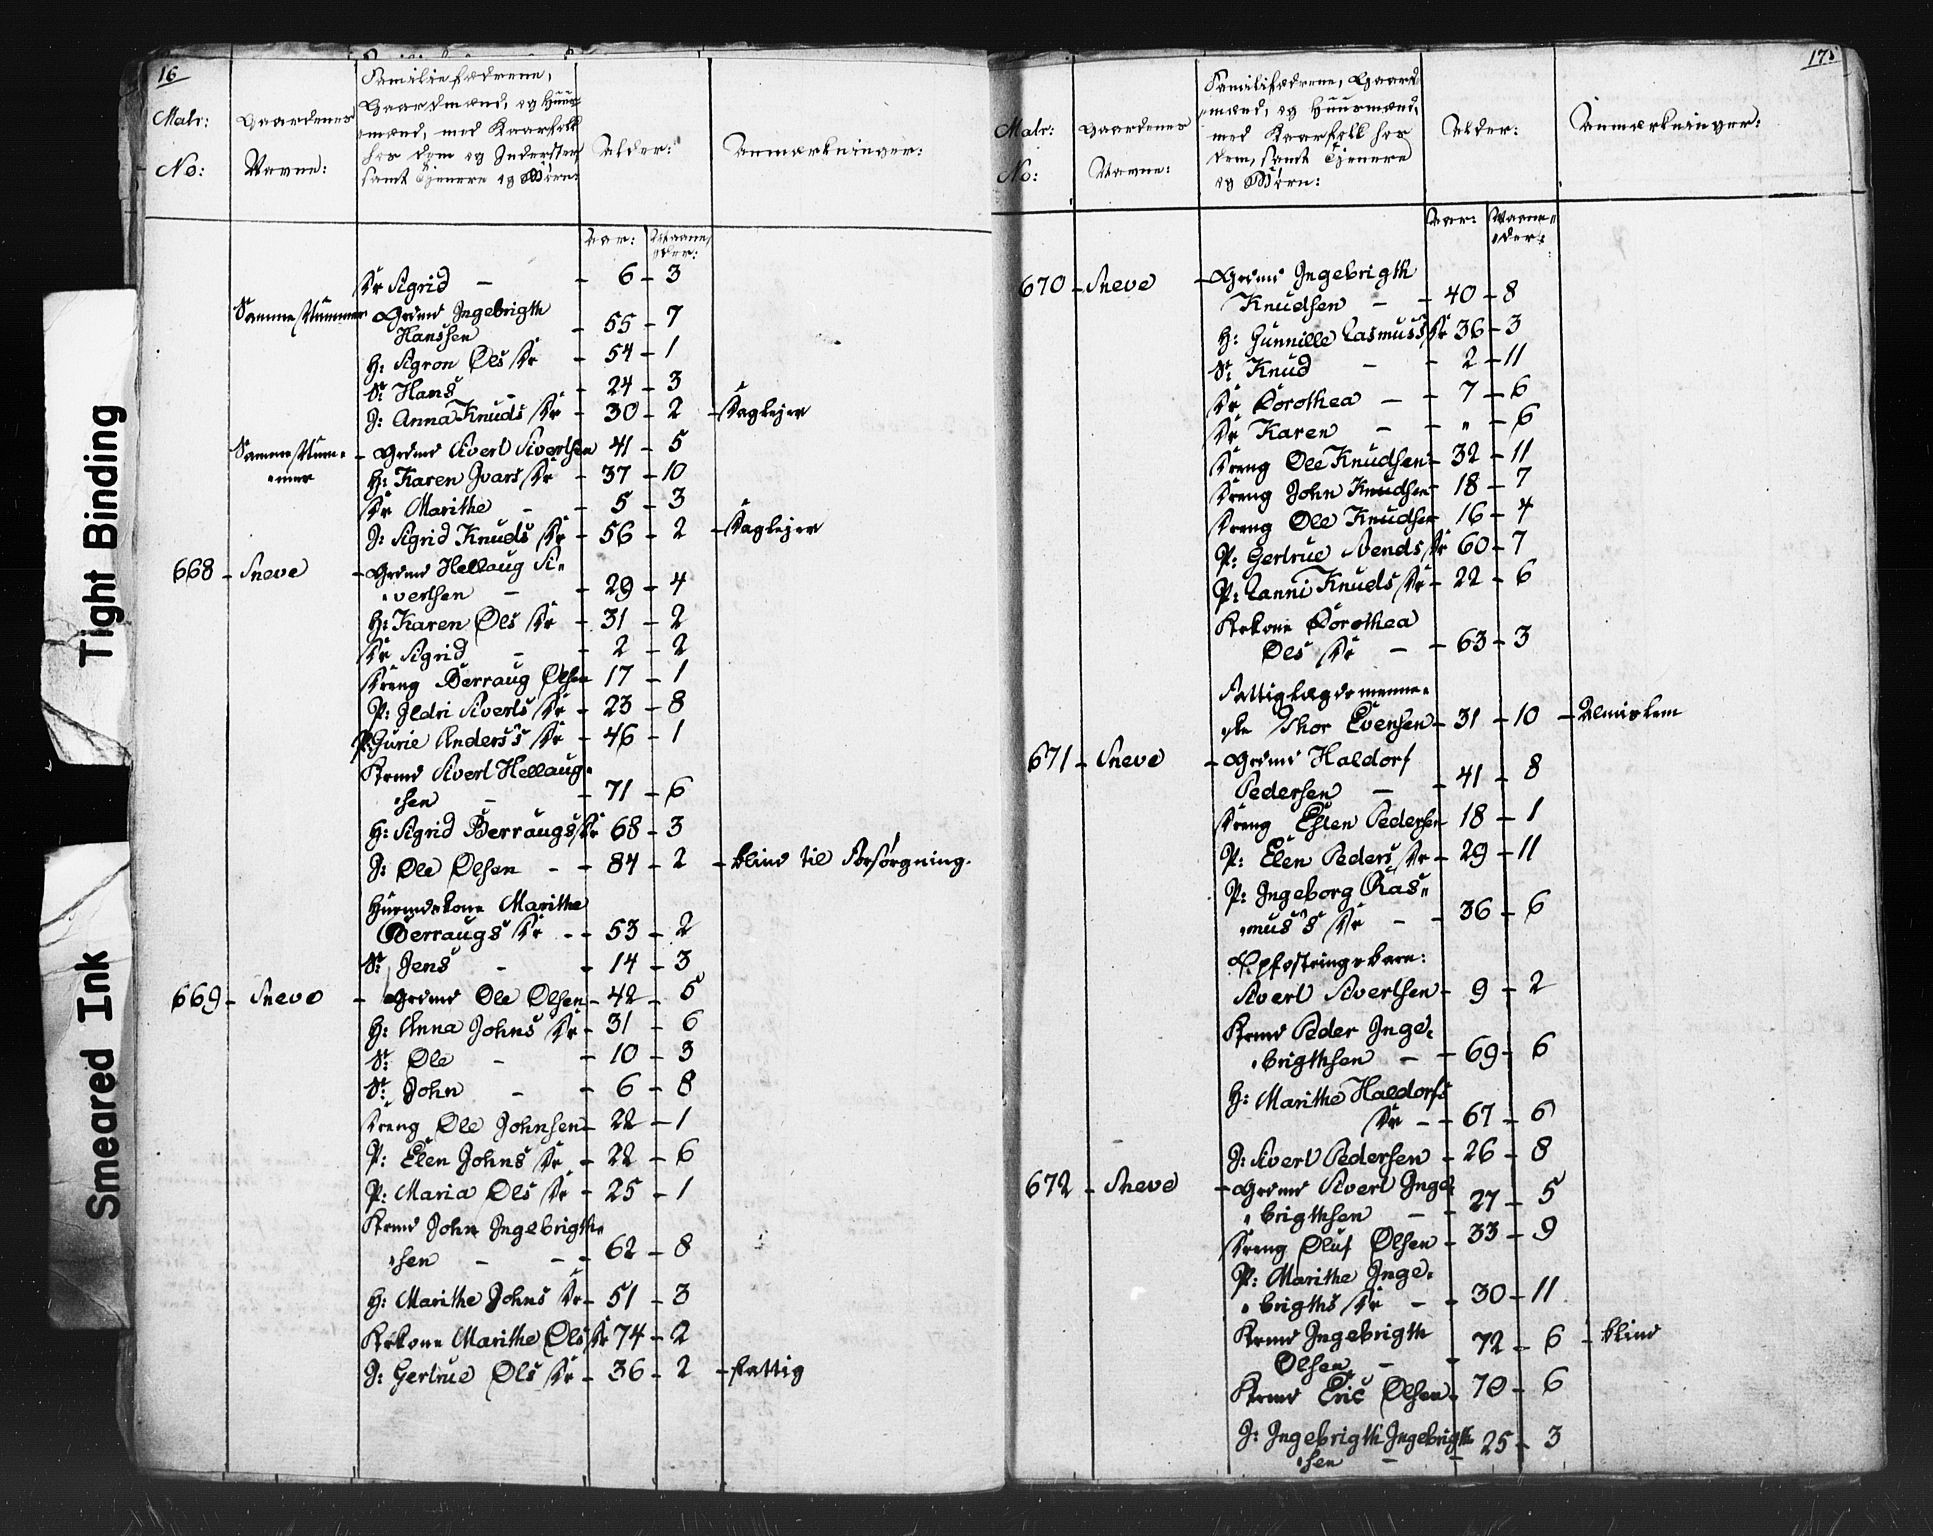 Tight Binding
Smeared Ink
16
Matr: No:
Gaardenes Navne:
Familiefædrene,
Gaardmænd, og Huus-
mænd, med Kaarfolk
hos dem og Inderster
samt Tjenere og Børn:
Alder:
Anmærkninger:
Aar: Maane-
der:
Dr Sigrid - - 6 - 3
Samme Nummer Grdmd Ingebrigth
Hanssen - 55 - 7
H: Sigron Ols Dr - 54 - 1
Sr: Hans - - 24 - 3
J: Anna Knuds Dr - 30 - 2 - Daglejer
Samme Num-
mer - Grdmd Sivert Sivertsen 41 - 5
H: Karen Ivars Dr - 37 - 10
Dr Marithe - - 5 - 3
J: Sigrid Knuds Dr - 56 - 2 - Daglejer
668 - Sneve - Grdmd Hellaug Si-
vertsen - - 29 - 4
H: Karen Ols Dr - 31 - 2
Dr Sigrid - - 2 - 2
Dreng Berraug Olsen 17 - 1
P: Ildri Siverts Dr - 23 - 8
P: Gurie Anders's Dr - 46 - 1
Krmd Sivert Hellaug-
sen - - 71 - 6
H: Sigrid Berraugs Dr 68 - 3
J: Ole Olsen - - 84 - 2 - blind til Forsørgning.
Huusmdskone Marithe
Berraugs Dr - - 53 - 2
Sr: Jens - - 14 - 3
669 - Sneve - Grdmd Ole Olsen - 42 - 5
H: Anna Johns Dr - 31 - 6
Sr: Ole - - 10 - 3
Sr: John - - 6 - 8
Dreng Ole Johnsen - 22 - 1
P: Elen Johns Dr - 22 - 6
P: Maria Ols Dr - 25 - 1
Krmd John Ingebrigth-
sen - - - 62 - 8
H: Marithe Johns Dr - 51 - 3
Krkone Marithe Ols Dr 74 - 2
J: Gertrue Ols Dr - 36 - 2 - fattig
17
Matr: No:
Gaardenes Navne:
Familiefædrene, Gaard-
mænd, og Huusmænd,
med Kaarfolk hos
dem, samt Tjenere
og Børn:
Alder:
Anmærkninger:
Aar: Maane-
der:
670 - Sneve - Grdmd Ingebrigth
Knudsen - - 40 - 8
H: Gunnille Rasmuss Dr 36 - 3
Sr: Knud - - 2 - 11
Dr Dorothea - - 7 - 6
Dr Karen - - " - 6
Dreng Ole Knudsen - 32 - 11
Dreng John Knudsen - 18 - 7
Dreng Ole Knudsen 16 - 4
P: Gertrue Svends Dr 60 - 7
P: Ranni Knuds Dr - 22 - 6
Krkone Dorothea
Ols Dr - - 63 - 3
Fattiglægdsmenne-
ske Thor Evensen - 31 - 10 -
671 - Sneve - Grdmd Haldorf
Pedersen - - 41 - 8
Dreng Esten Pedersen 18 - 1
P: Elen Peders Dr - 29 - 11
P: Ingeborg Ras-
mus's Dr - - 36 - 6
Opfostringsbarn:
Sivert Sivertsen - 9 - 2
Krmd Peder Inge-
brigthsen - - 69 - 6
H: Marithe Haldorfs
Dr - - 67 - 6
J: Sivert Pedersen - 26 - 8
672 - Sneve - Grdmd Sivert Inge-
brigthsen - - 27 - 5
Dreng Oluf Olsen - 33 - 9
P: Marithe Inge-
brigths Dr - - 30 - 11
Krmd Ingebrigth
Olsen - - 72 - 6 - blind
Krmd Eric Olsen - 70 - 6
J: Ingebrigth Ingebrigth-
sen - - 25 - 3